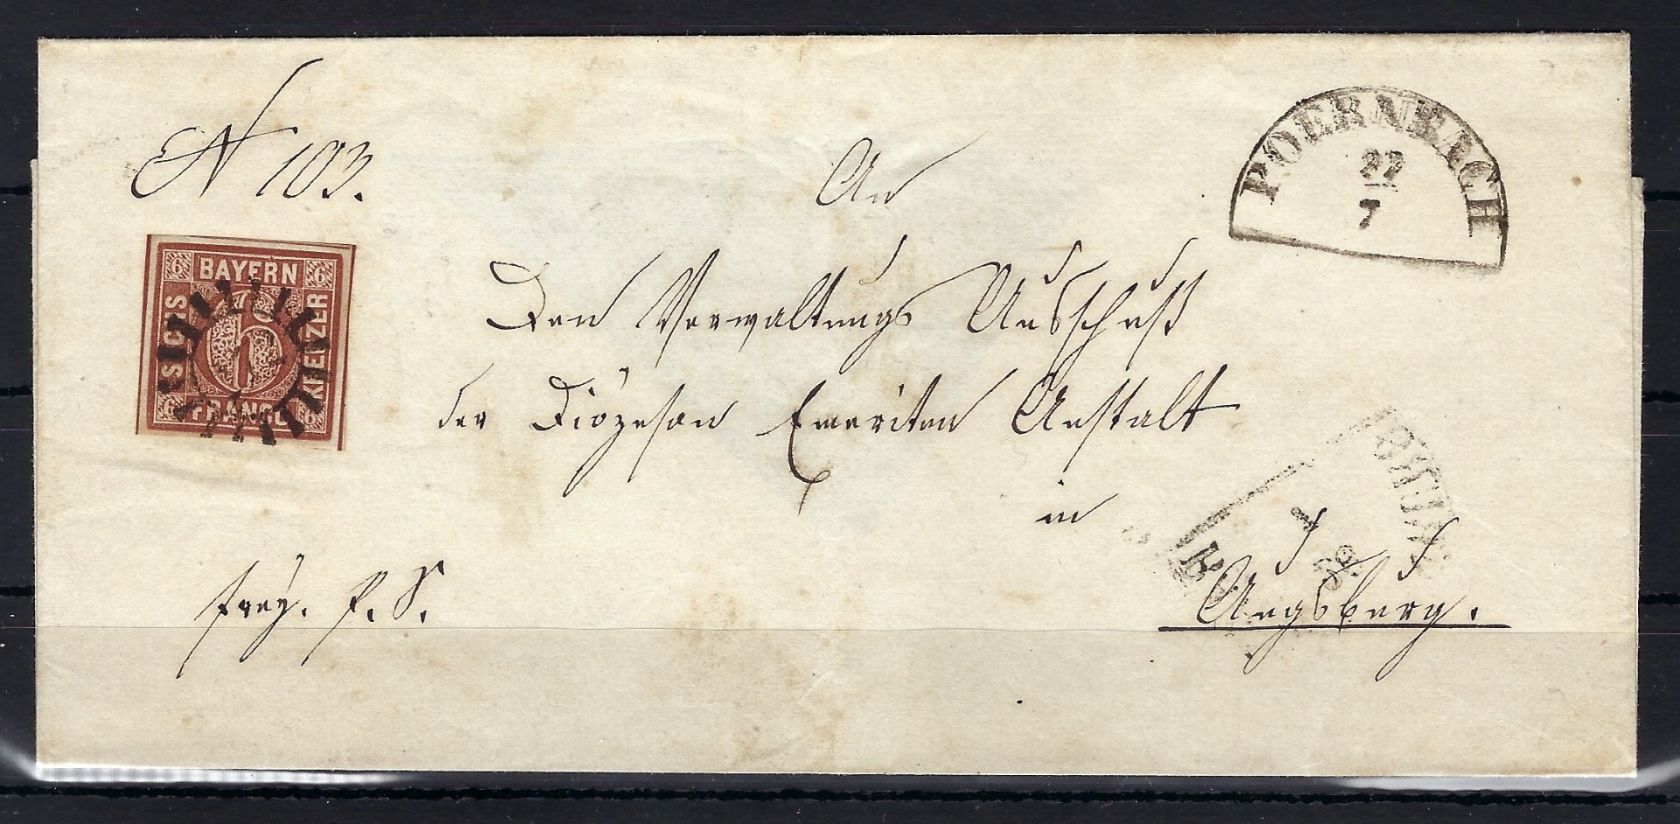 N 103.
An
POERNBACH
22
7
6 BAYERN 6
SECHS
6
KREUZER
6 FRANCO 6
Den Verwaltungs Ausschuß
der Diözesan Emeriten Anstalt
in
Augsburg.
frey. P. S.